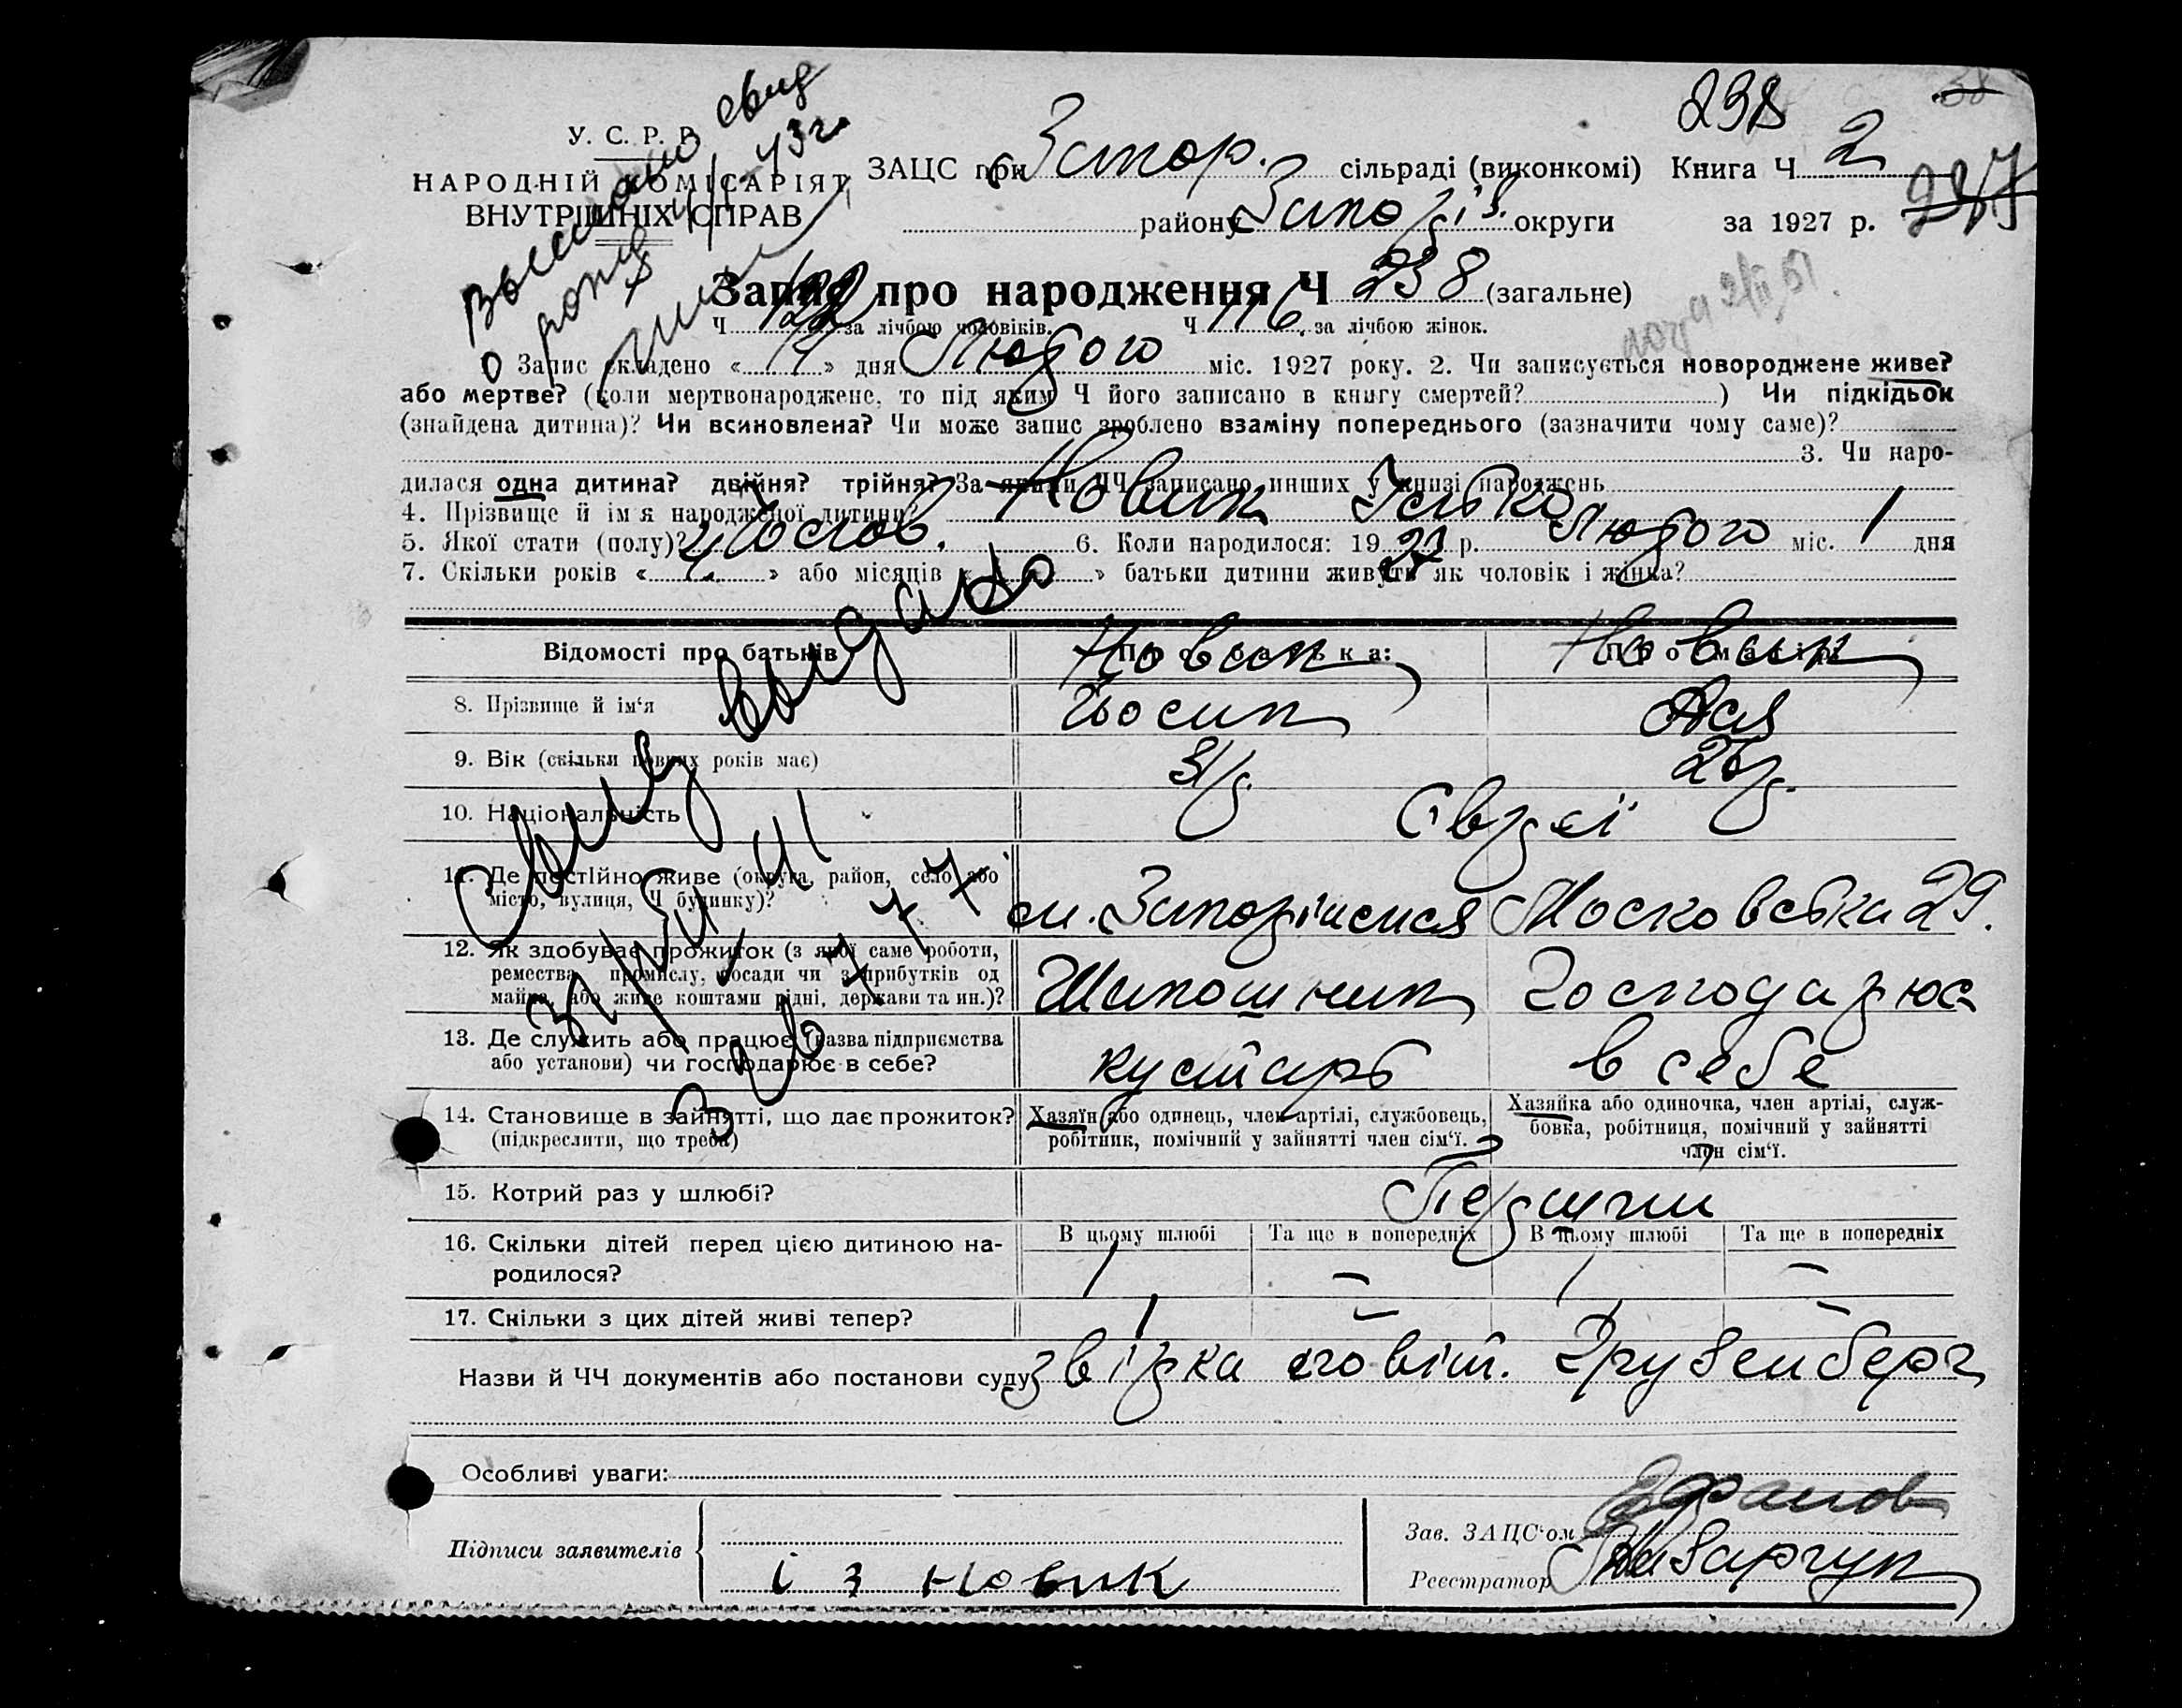 238
У. С. Р. Р.
НАРОДНІЙ КОМІСАРІЯТ
ВНУТРІШНІХ СПРАВ
ЗАЦС при Запор. сільраді (виконкомі) Книга Ч 2
району Запоріз. округи за 1927 р. 227
Запис про народження Ч 238 (загальне)
Ч 122 за лічбою чоловіків. Ч 116 за лічбою жінок.
Запис складено « » дня Лютого міс. 1927 року. 2. Чи записується новороджене живе?
або мертве? (коли мертвонароджене, то під яким Ч його записано в книгу смертей? ) Чи підкідьок
(знайдена дитина)? Чи всиновлена? Чи може запис зроблено взаміну попереднього (зазначити чому саме)?
3. Чи наро-
дилася одна дитина? двійня? трійня? За якими ЧЧ записано инших у книзі народжень
4. Прізвище й імя народженої дитини? Новик
5. Якої стати (полу)? Чолов. 6. Коли народилося: 1927 р. Лютого міс. 1 дня
7. Скільки років « » або місяців « » батьки дитини живуть як чоловік і жінка?
Відомості про батьків Про батька: Про матір:
Новик Новик
8. Прізвище й ім‘я Йосип Ася
9. Вік (скільки повних років має) 31 р. 26 р.
10. Національність Євреї
11. Де постійно живе (округа, район, село або
місто, вулиця, Ч будинку)? м. Запоріжжя Московська 29.
12. Як здобуває прожиток (з якої саме роботи,
ремества, промислу, посади чи з прибутків од
майна, або живе коштами рідні, держави та ин.)? Шапошник Господарює
13. Де служить або працює (назва підприємства
або установи) чи господарює в себе? кустарь в себе
14. Становище в зайнятті, що дає прожиток?
(підкреслити, що треба)
Хазяїн або одинець, член артілі, службовець,
робітник, помічний у зайнятті член сім‘ї.
Хазяйка або одиночка, член артілі, служ-
бовка, робітниця, помічний у зайнятті
член сім‘ї.
15. Котрий раз у шлюбі? Перший
16. Скільки дітей перед цією дитиною на-
родилося?
В цьому шлюбі Та ще в попередніх В цьому шлюбі Та ще в попередніх
1 – 1 –
17. Скільки з цих дітей живі тепер? 1 – –
Назви й ЧЧ документів або постанови суду
Особливі уваги:
Підписи заявителів
і з новик
Зав. ЗАЦС‘ом
Реєстратор
Свид выдано